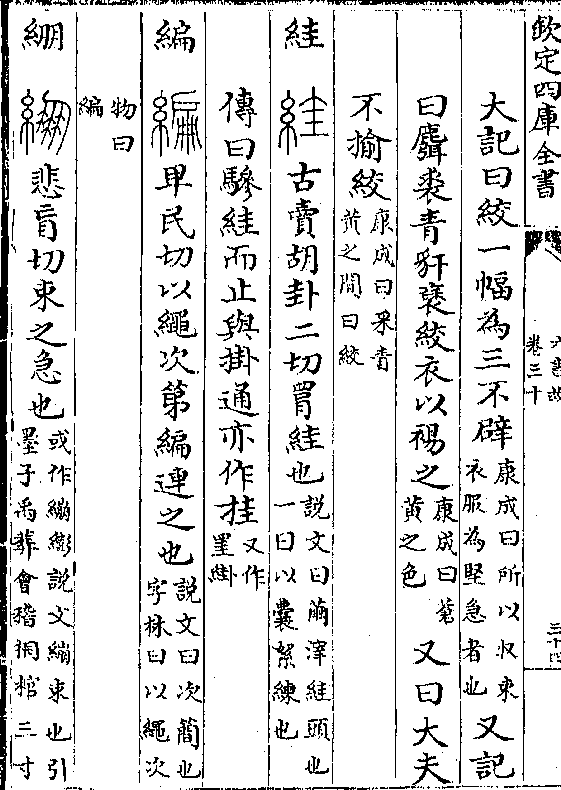 欽定四庫全書
六書故
卷三十
三十四
大記曰絞一幅為三不辟
康成曰所以収束
衣服為堅急者也
又記
曰麛裘青豻褎絞衣以裼之
康成曰蒼
黄之色
又曰大夫
不揄絞
康成曰采青
黄之間曰絞
絓
古賣胡卦二切罥絓也
説文曰繭滓絓頭也
一曰以囊絮練也
傳曰驂絓而止與掛通亦作挂
又作
罣
編
卑民切以繩次第編連之也
説文曰次簡也
字林曰以繩次
物曰
編
綳
悲盲切束之急也
或作繃 説文繃束也引
墨子禹葬會稽桐棺三寸